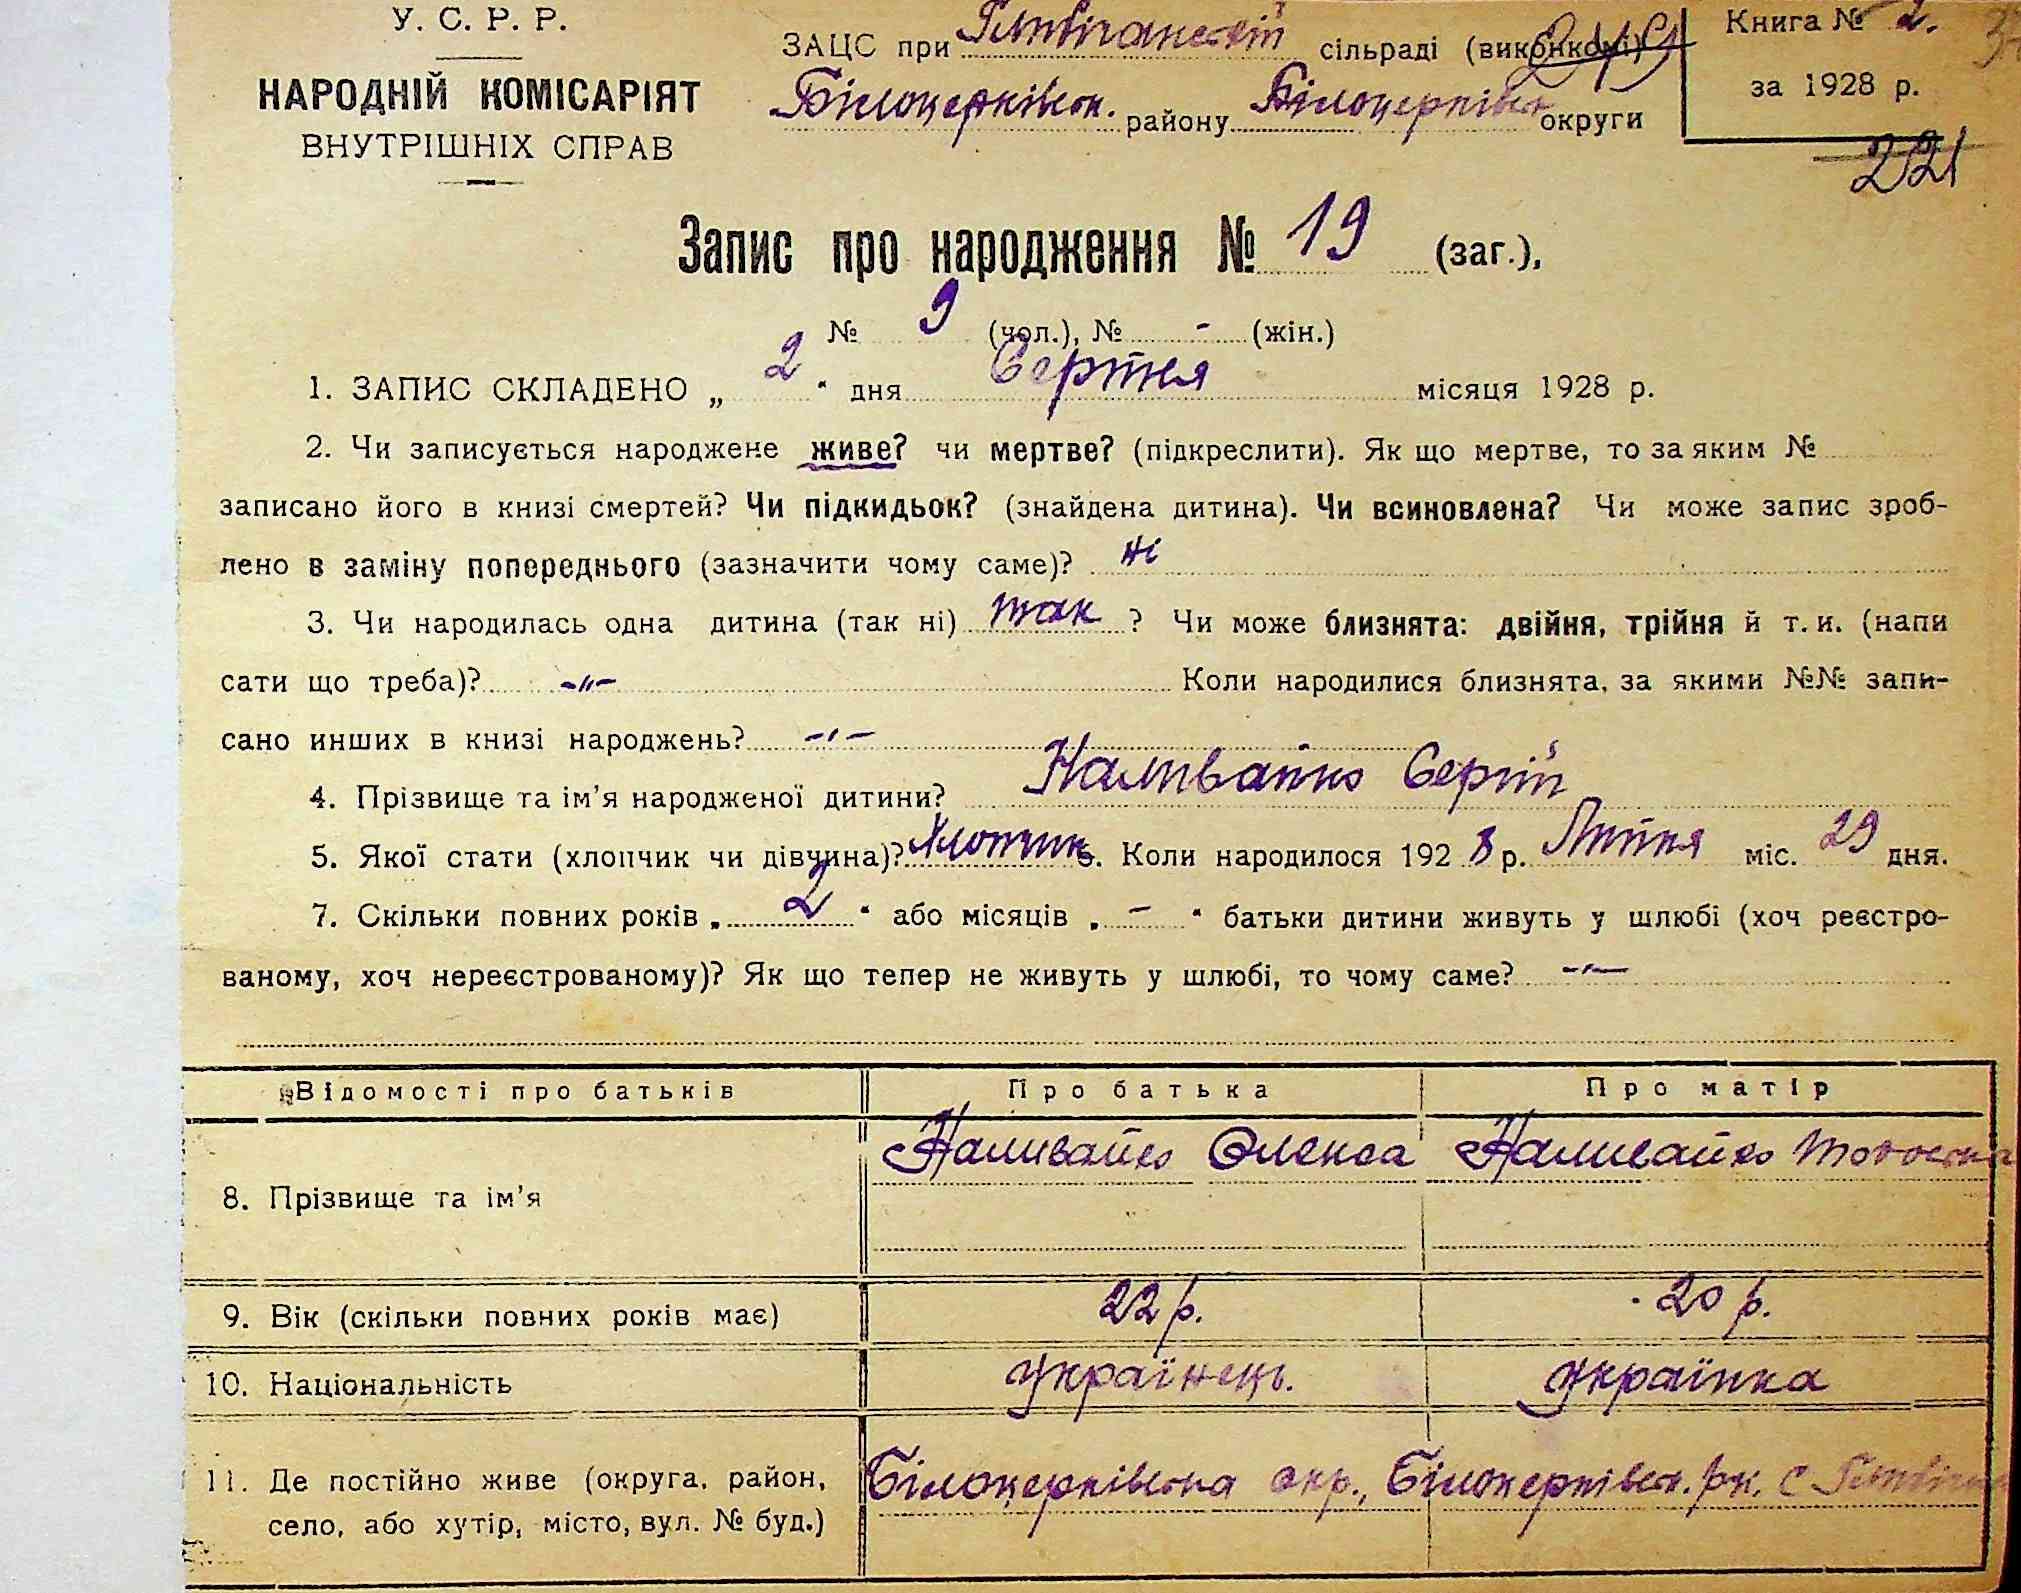 У. С. Р. Р.
НАРОДНІЙ КОМІСАРІЯТ
ВНУТРІШНІХ СПРАВ
ЗАЦС при сільраді (виконкомі)
Білоцерківськ. району Білоцерківськ округи
Книга № 2.
за 1928 р.
221
Запис про народження № 19 (заг.),
№ 9 (чол.), № - (жін.)
1. ЗАПИС СКЛАДЕНО „ 2 “ дня Серпня місяця 1928 р.
2. Чи записується народжене живе? чи мертве? (підкреслити). Як що мертве, то за яким №
записано його в книзі смертей? Чи підкидьок? (знайдена дитина). Чи всиновлена? Чи може запис зроб-
лено в заміну попереднього (зазначити чому саме)? ні
3. Чи народилась одна дитина (так ні) так ? Чи може близнята: двійня, трійня й т. и. (напи
сати що треба)? -„- Коли народилися близнята, за якими №№ запи-
сано инших в книзі народжень? -„-
4. Прізвище та ім’я народженої дитини? Наливайко Сергій
5. Якої стати (хлопчик чи дівчина)? Хлопчик. Коли народилося 1928 р. Липня міс. 29 дня.
7. Скільки повних років „ 2 “ або місяців „ - “ батьки дитини живуть у шлюбі (хоч реєстро-
ваному, хоч нереєстрованому)? Як що тепер не живуть у шлюбі, то чому саме? -„-
Відомості про батьків Про батька Про матір
8. Прізвище та ім’я Наливайко Олекса Наливайко
9. Вік (скільки повних років має) 22 р. 20 р.
10. Національність Українець. Українка
11. Де постійно живе (округа, район, Білоцерківська окр., Білоцерківськ. рн. с
село, або хутір, місто, вул. № буд.)